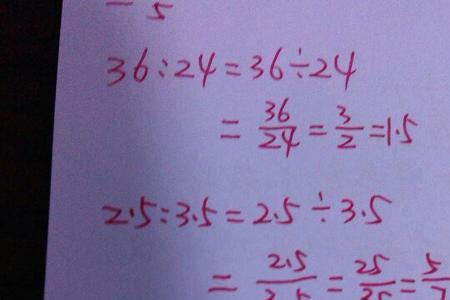 5
36:24=36÷24
=36/24=3/2=1.5
2.5:3.5=2.5÷3.5
=2.5/3.5=25/35=5/7